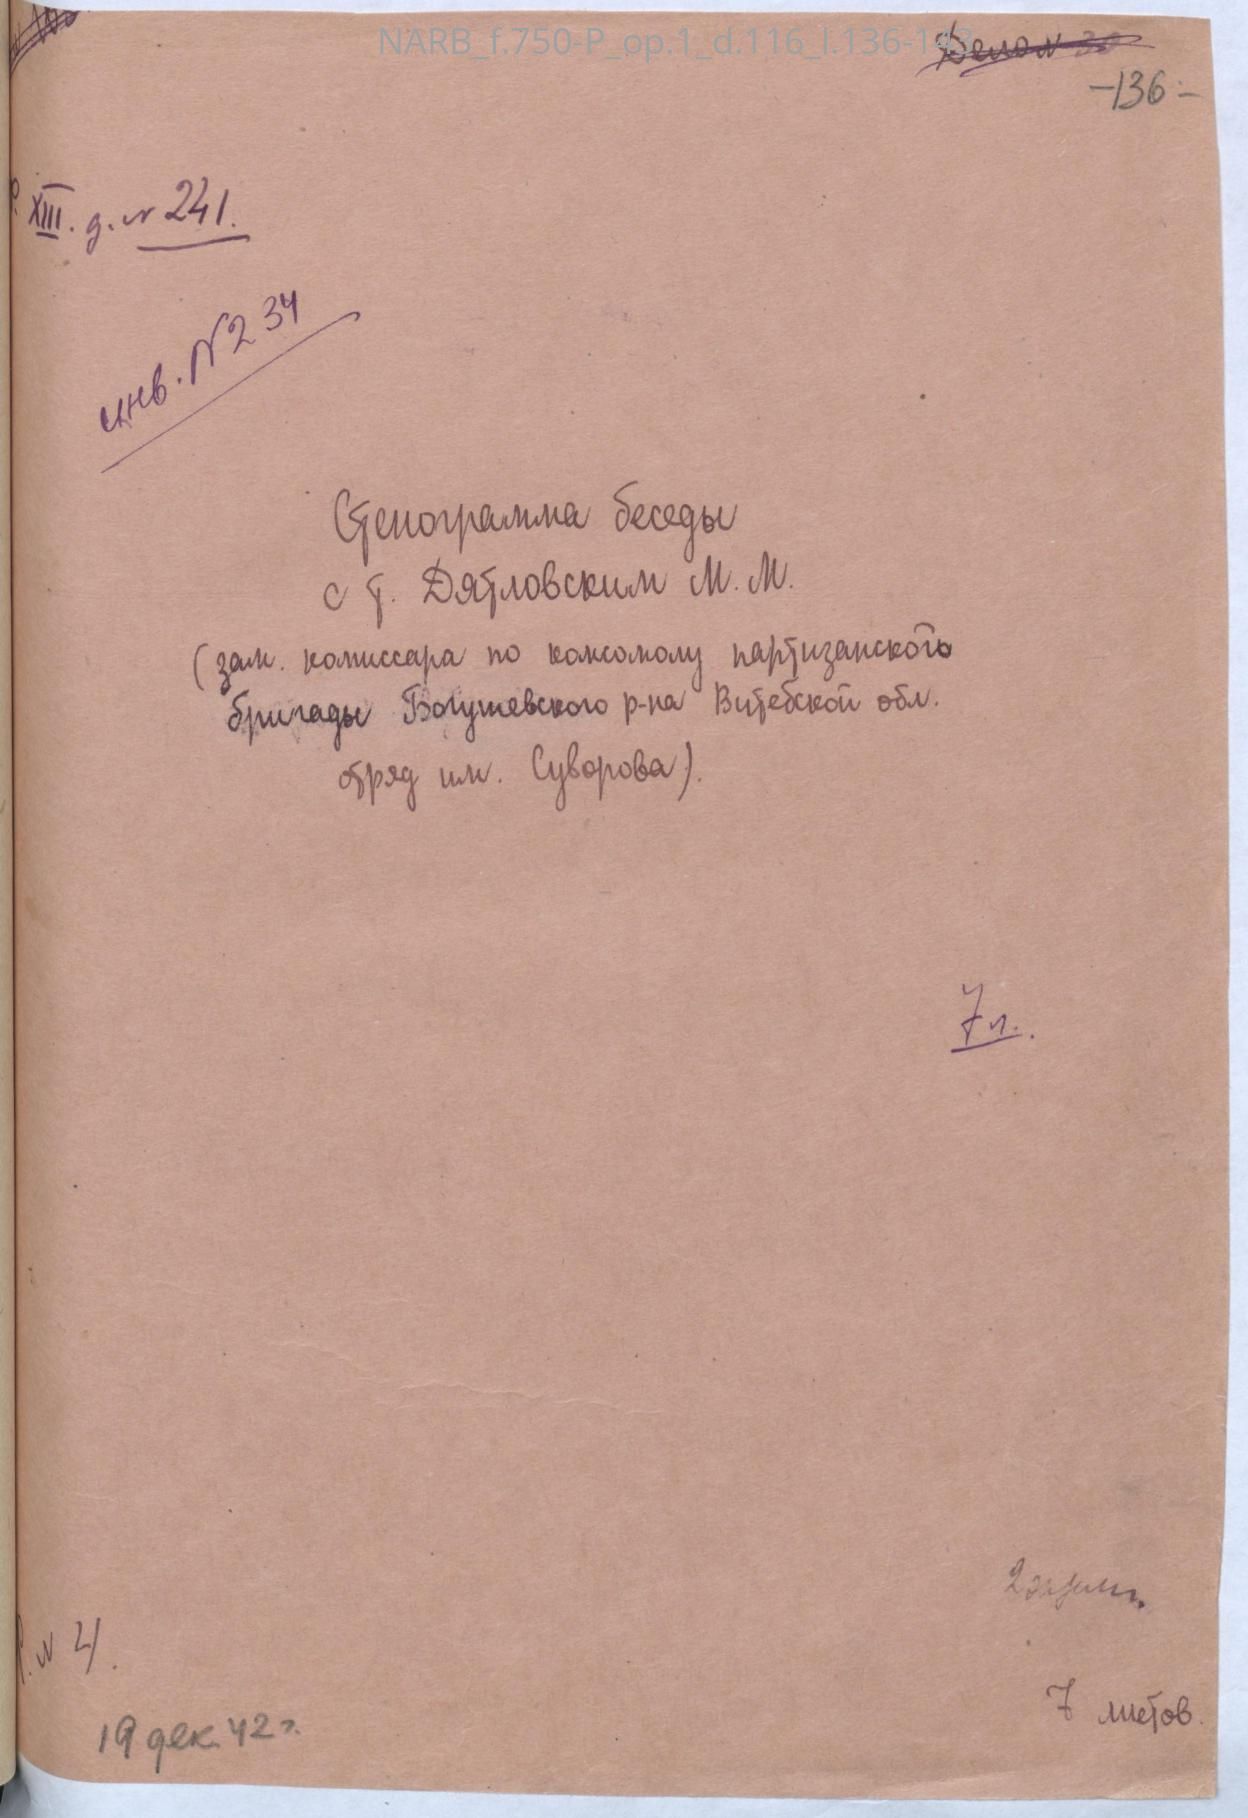 NARB_f.750-P_op.1_d.116_l.136-143
Дело №
-136-
XIII. д. № 241.
инв. № 234
Стенограмма беседы
с т. Дятловским М. М.
(зам. комиссара по комсомолу партизанского
бригады Богушевского р-на Витебской обл.
отряд им. Суворова).
7 л.
2 экземп.
Р. № 4.
7 листов.
19 дек. 42 г.